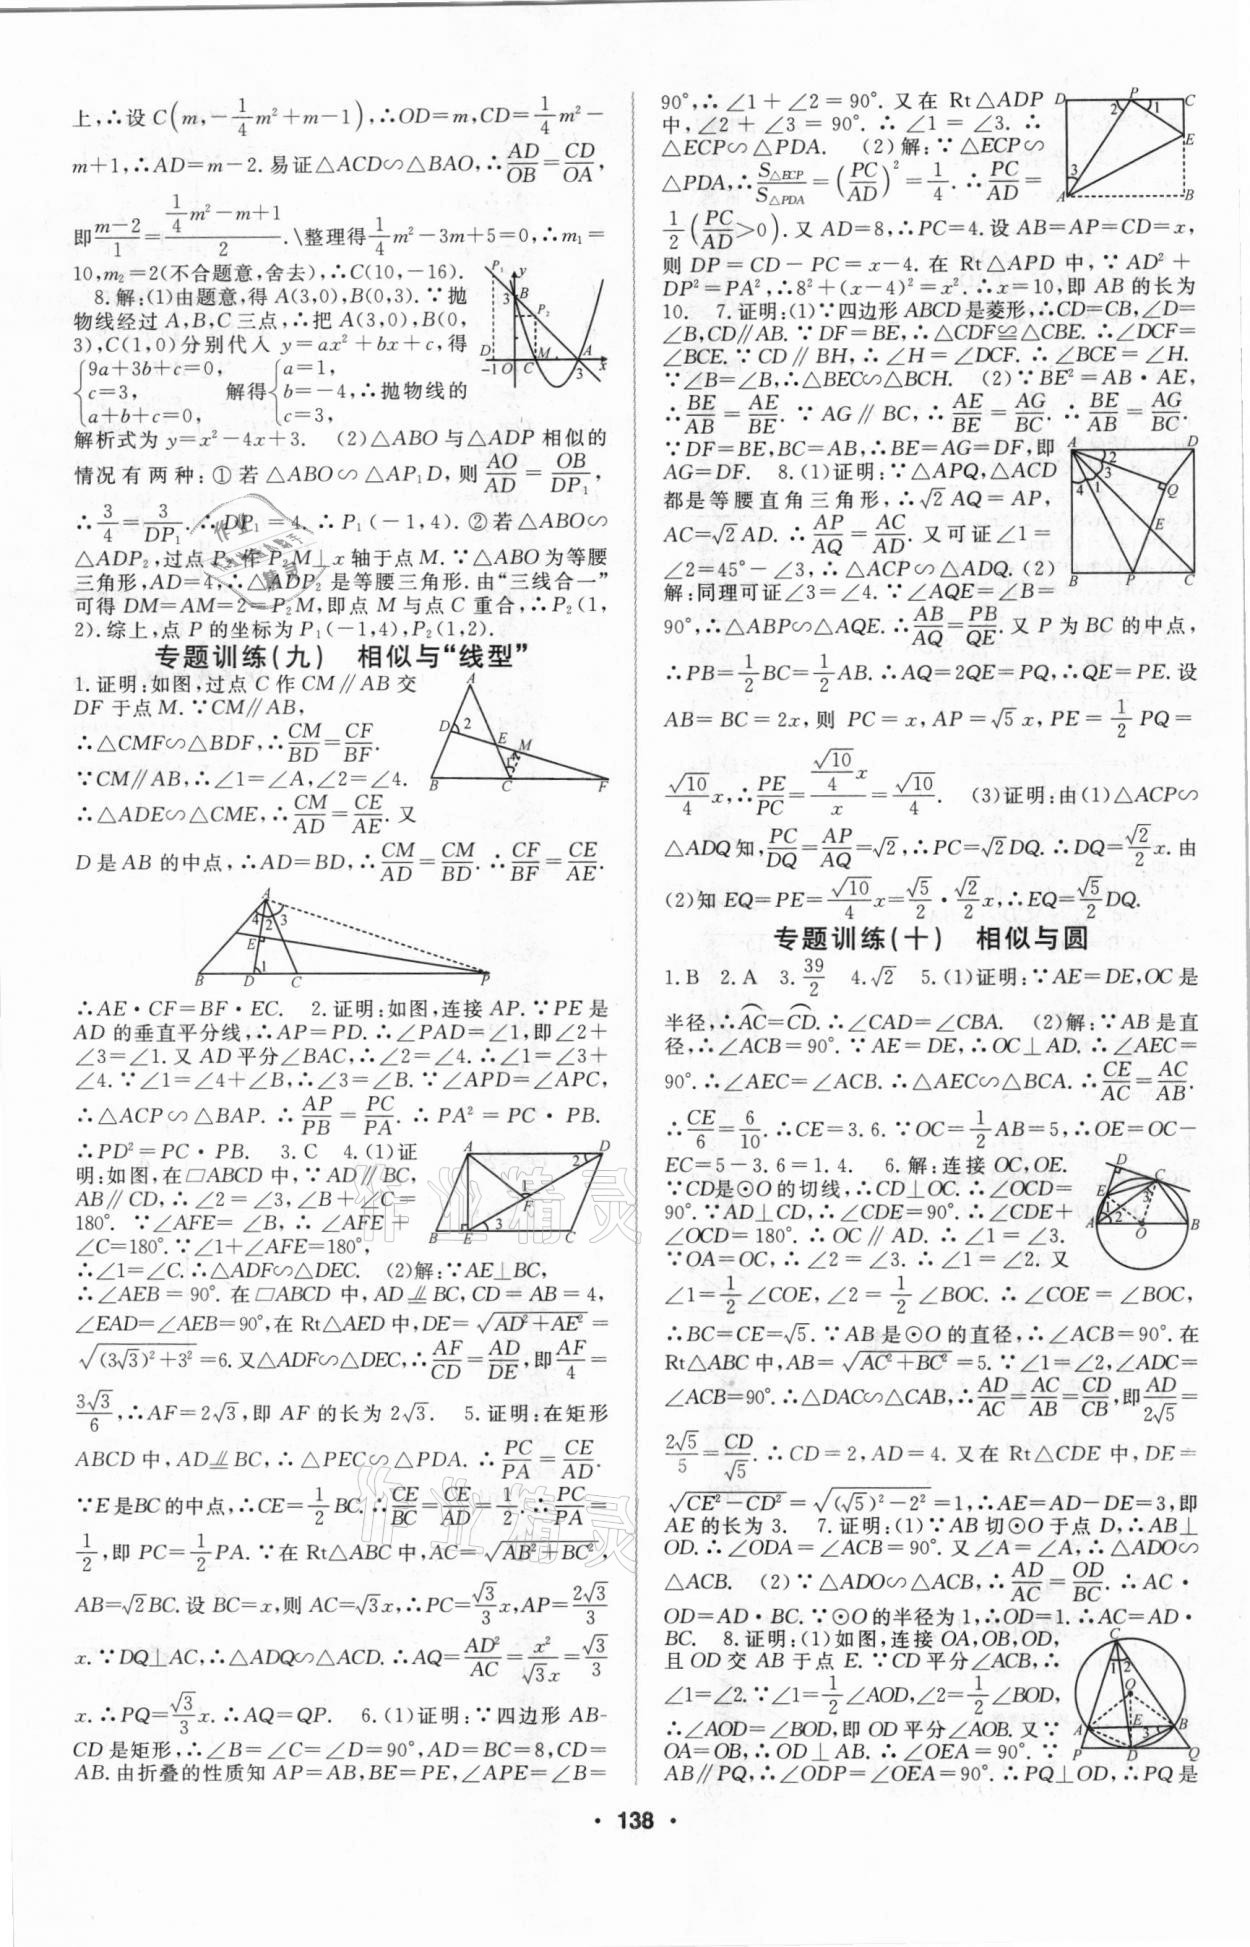 上,∴设 C(m,-1/4m²+m-1),∴OD=m,CD=1/4m²-
m+1,∴AD=m-2. 易证△ACD∽△BAO,∴AD/OB=CD/OA,
即(m-2)/1=(1/4m²-m+1)/2.\整理得1/4m²-3m+5=0,∴m₁=
10,m₂=2(不合题意,舍去),∴C(10,-16).
8.解:(1)由题意,得 A(3,0),B(0,3).∵抛
物线经过 A,B,C 三点,∴把 A(3,0),B(0,
3),C(1,0)分别代入 y=ax²+bx+c,得
{9a+3b+c=0, {a=1,
c=3, 解得 b=-4,∴抛物线的
a+b+c=0, c=3,
解析式为 y=x²-4x+3. (2)△ABO与△ADP相似的
情况有两种:①若△ABO∽△AP₁D,则AO/AD=OB/DP₁,
∴3/4=3/DP₁.∴DP₁=4.∴P₁(-1,4).②若△ABO∽
△ADP₂,过点P₂作P₂M⊥x轴于点M.∵△ABO为等腰
三角形,AD=4,∴△ADP₂是等腰三角形.由“三线合一”
可得 DM=AM=2=P₂M,即点 M 与点 C 重合,∴P₂(1,
2).综上,点 P 的坐标为 P₁(-1,4),P₂(1,2).
专题训练(九) 相似与“线型”
1.证明:如图,过点 C 作 CM∥AB 交
DF 于点 M.∵CM∥AB,
∴△CMF∽△BDF,∴CM/BD=CF/BF.
∵CM∥AB,∴∠1=∠A,∠2=∠4.
∴△ADE∽△CME,∴CM/AD=CE/AE.又
D 是 AB 的中点,∴AD=BD,∴CM/AD=CM/BD.∴CF/BF=CE/AE.
∴AE·CF=BF·EC. 2.证明:如图,连接 AP.∵PE 是
AD 的垂直平分线,∴AP=PD.∴∠PAD=∠1,即∠2+
∠3=∠1.又 AD 平分∠BAC,∴∠2=∠4.∴∠1=∠3+
∠4.∵∠1=∠4+∠B,∴∠3=∠B.∵∠APD=∠APC,
∴△ACP∽△BAP.∴AP/PB=PC/PA.∴PA²=PC·PB.
∴PD²=PC·PB. 3.C 4.(1)证
明:如图,在▱ABCD 中,∵AD∥BC,
AB∥CD,∴∠2=∠3,∠B+∠C=
180°. ∵∠AFE=∠B,∴∠AFE+
∠C=180°.∵∠1+∠AFE=180°,
∴∠1=∠C.∴△ADF∽△DEC. (2)解:∵AE⊥BC,
∴∠AEB=90°.在▱ABCD 中,AD∥BC,CD=AB=4,
∠EAD=∠AEB=90°,在 Rt△AED 中,DE=√(AD²+AE²)=
√((3√3)²+3²)=6.又△ADF∽△DEC,∴AF/CD=AD/DE,即AF/4=
3√3/6,∴AF=2√3,即 AF 的长为 2√3. 5.证明:在矩形
ABCD 中,AD∥BC,∴△PEC∽△PDA.∴PC/PA=CE/AD.
∵E是BC的中点,∴CE=1/2BC.∴CE/BC=CE/AD=1/2.∴PC/PA=
1/2,即 PC=1/2PA.∵在 Rt△ABC中,AC=√(AB²+BC²),
AB=√2BC.设 BC=x,则 AC=√3x,∴PC=√3/3x,AP=2√3/3
x.∵DQ⊥AC,∴△ADQ∽△ACD.∴AQ=AD²/AC=x²/√3x=√3/3
x.∴PQ=√3/3x.∴AQ=QP. 6.(1)证明:∵四边形 AB-
CD 是矩形,∴∠B=∠C=∠D=90°,AD=BC=8,CD=
AB.由折叠的性质知 AP=AB,BE=PE,∠APE=∠B=
90°,∴∠1+∠2=90°.又在 Rt△ADP
中,∠2+∠3=90°.∴∠1=∠3.∴
△ECP∽△PDA. (2)解:∵△ECP∽
△PDA,∴S△ECP/S△PDA=(PC/AD)²=1/4.∴PC/AD=
1/2(PC/AD>0).又 AD=8,∴PC=4.设 AB=AP=CD=x,
则 DP=CD-PC=x-4.在 Rt△APD 中,∵AD²+
DP²=PA²,∴8²+(x-4)²=x²,∴x=10,即 AB 的长为
10. 7.证明:(1)∵四边形 ABCD 是菱形,∴CD=CB,∠D=
∠B,CD∥AB.∵DF=BE,∴△CDF≌△CBE.∴∠DCF=
∠BCE.∵CD∥BH,∴∠H=∠DCF.∴∠BCE=∠H.
∵∠B=∠B,∴△BEC∽△BCH. (2)∵BE²=AB·AE,
∴BE/AB=AE/BE.∵AG∥BC,∴AE/BE=AG/BC.∴BE/AB=AG/BC.
∵DF=BE,BC=AB,∴BE=AG=DF,即
AG=DF. 8.(1)证明:∵△APQ,△ACD
都是等腰直角三角形,∴√2AQ=AP,
AC=√2AD.∴AP/AQ=AC/AD.又可证∠1=
∠2=45°-∠3,∴△ACP∽△ADQ.(2)
解:同理可证∠3=∠4.∵∠AQE=∠B=
90°,∴△ABP∽△AQE.∴AB/AQ=PB/QE.又 P 为 BC 的中点,
∴PB=1/2BC=1/2AB.∴AQ=2QE=PQ,∴QE=PE.设
AB=BC=2x,则 PC=x,AP=√5x,PE=1/2PQ=
√10/4x,∴PE/PC=(√10/4x)/x=√10/4. (3)证明:由(1)△ACP∽
△ADQ知,PC/DQ=AP/AQ=√2,∴PC=√2DQ.∴DQ=√2/2x.由
(2)知 EQ=PE=√10/4x=√5/2·√2/2x,∴EQ=√5/2DQ.
专题训练(十) 相似与圆
1.B 2.A 3.39/2 4.√2 5.(1)证明:∵AE=DE,OC是
半径,∴AC⌒=CD⌒.∴∠CAD=∠CBA. (2)解:∵AB是直
径,∴∠ACB=90°.∵AE=DE,∴OC⊥AD.∴∠AEC=
90°.∴∠AEC=∠ACB.∴△AEC∽△BCA.∴CE/AC=AC/AB.
∴CE/6=6/10.∴CE=3.6.∵OC=1/2AB=5,∴OE=OC-
EC=5-3.6=1.4. 6.解:连接 OC,OE.
∵CD是⊙O的切线,∴CD⊥OC.∴∠OCD=
90°.∵AD⊥CD,∴∠CDE=90°.∴∠CDE+
∠OCD=180°.∴OC∥AD.∴∠1=∠3.
∵OA=OC,∴∠2=∠3.∴∠1=∠2.又
∠1=1/2∠COE,∠2=1/2∠BOC.∴∠COE=∠BOC,
∴BC=CE=√5.∵AB是⊙O的直径,∴∠ACB=90°.在
Rt△ABC 中,AB=√(AC²+BC²)=5.∵∠1=∠2,∠ADC=
∠ACB=90°.∴△DAC∽△CAB,∴AD/AC=AC/AB=CD/CB,即AD/2√5=
2√5/5=CD/√5.∴CD=2,AD=4.又在 Rt△CDE 中,DE=
√(CE²-CD²)=√((√5)²-2²)=1,∴AE=AD-DE=3,即
AE 的长为 3. 7.证明:(1)∵AB切⊙O于点 D,∴AB⊥
OD.∴∠ODA=∠ACB=90°.又∠A=∠A,∴△ADO∽
△ACB. (2)∵△ADO∽△ACB,∴AD/AC=OD/BC.∴AC·
OD=AD·BC.∵⊙O的半径为1,∴OD=1.∴AC=AD·
BC. 8.证明:(1)如图,连接 OA,OB,OD,
且 OD 交 AB 于点 E.∵CD 平分∠ACB,∴
∠1=∠2.∵∠1=1/2∠AOD,∠2=1/2∠BOD,
∴∠AOD=∠BOD,即 OD 平分∠AOB.又∵
OA=OB,∴OD⊥AB.∴∠OEA=90°.∵
AB∥PQ,∴∠ODP=∠OEA=90°.∴PQ⊥OD,∴PQ是
·138·